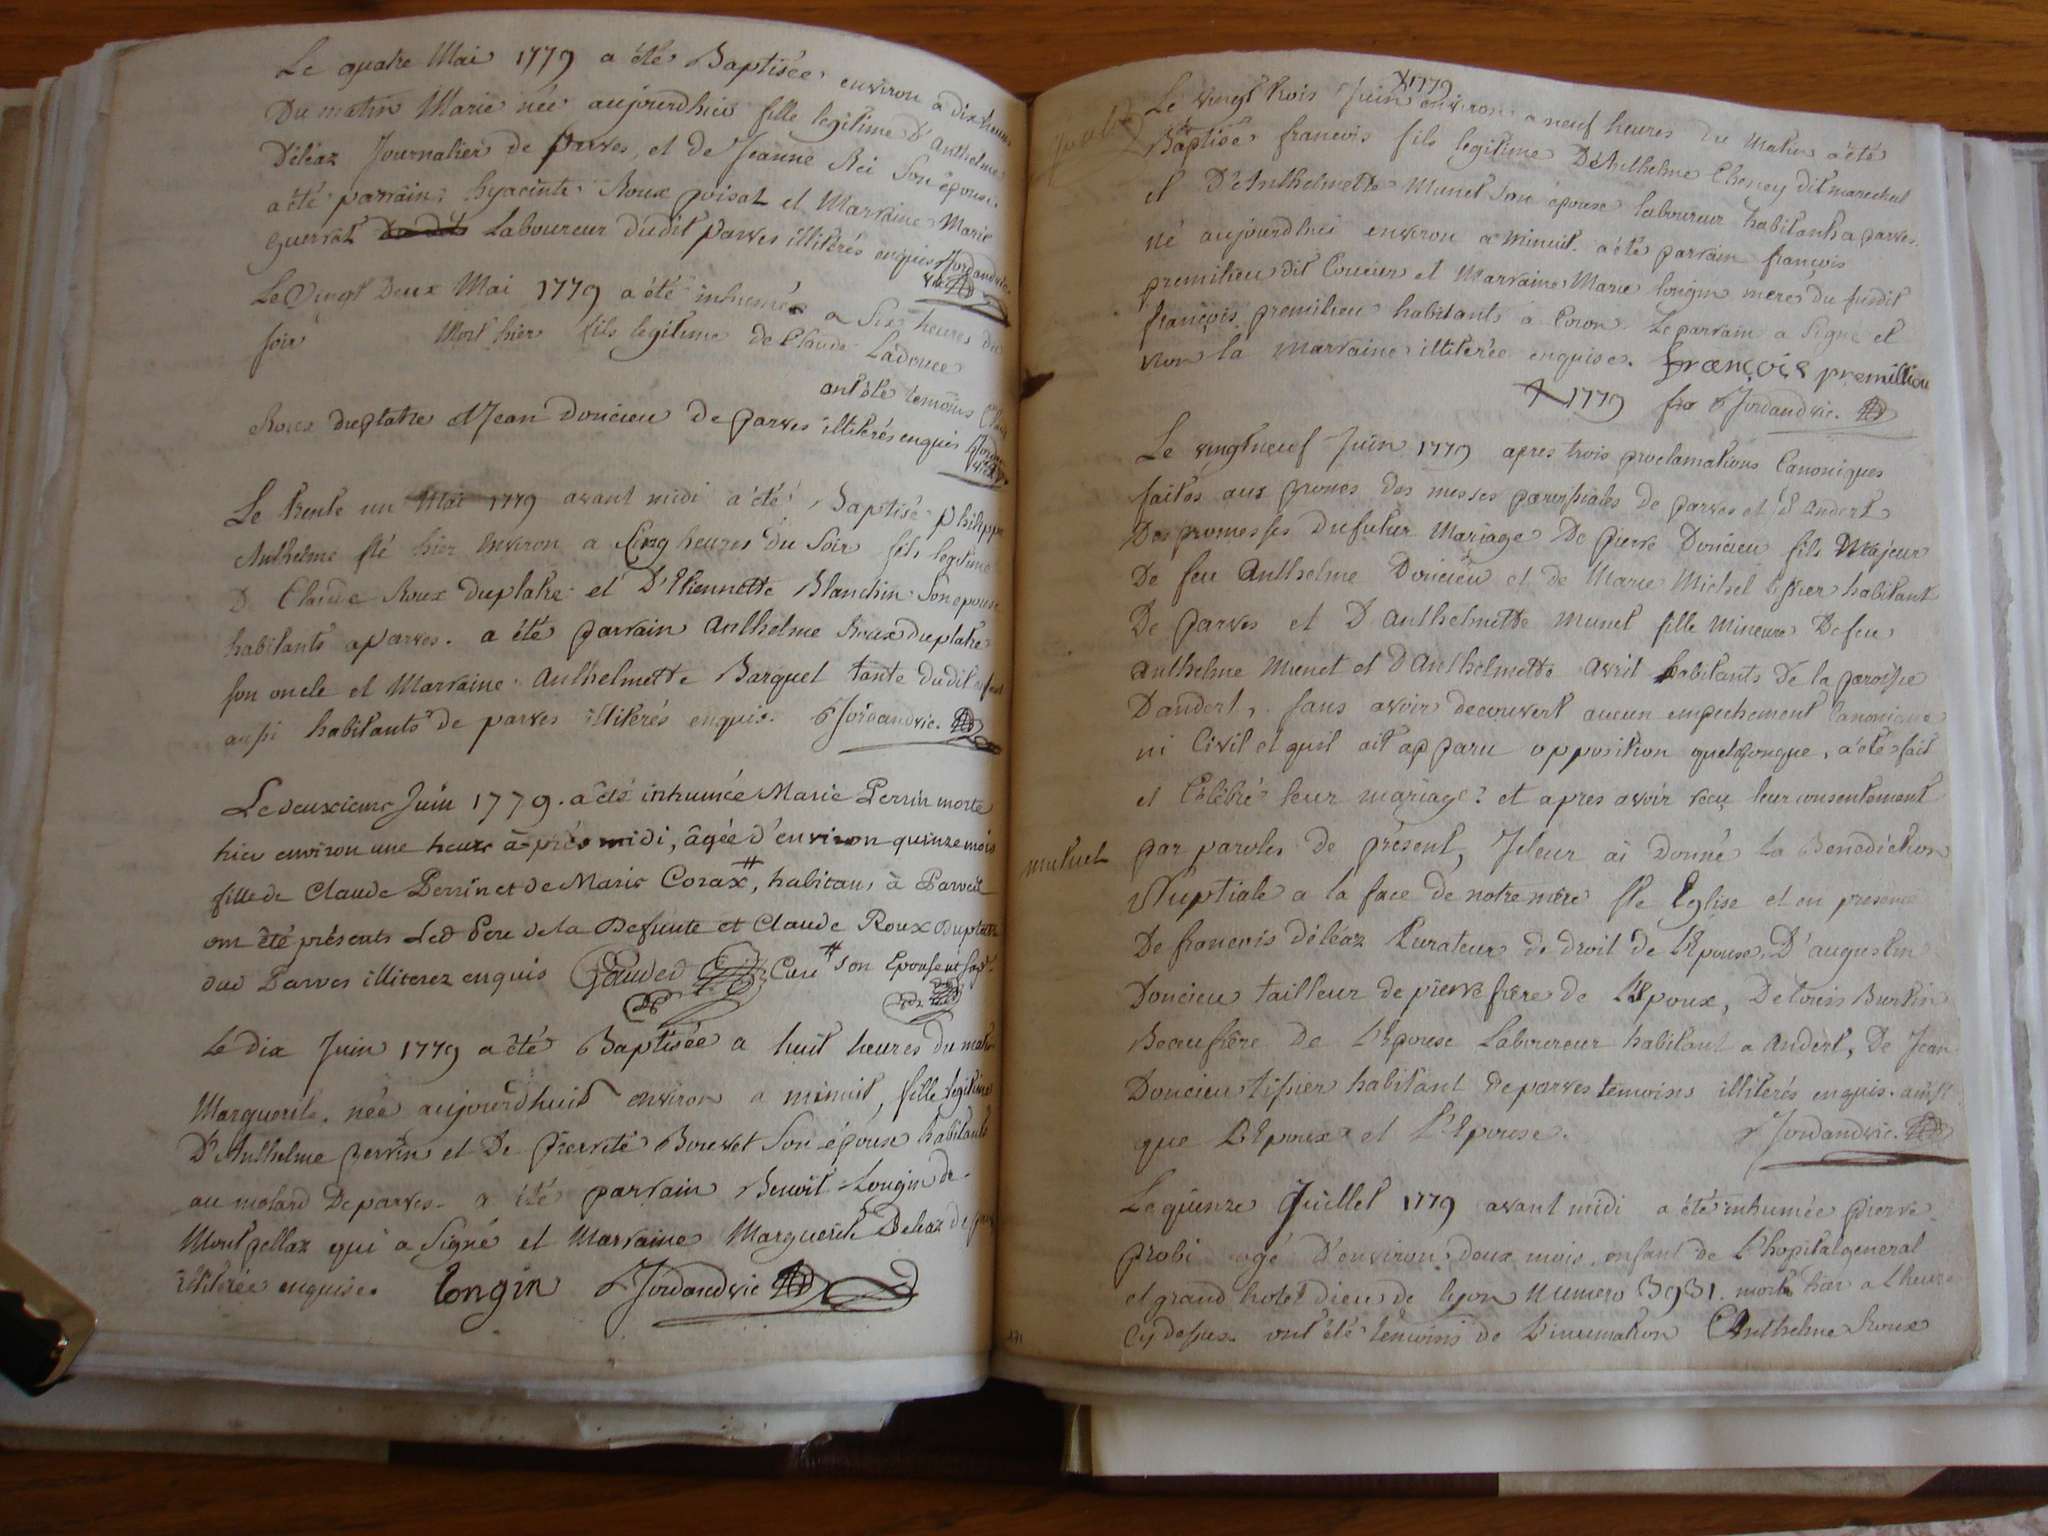 Le quatre Mai 1779 a été Baptisée environ a dix heures
Du matin Marie née aujourdhui fille legitime d'Anthelme
Déléaz Journalier de parves et de Jeanne Rei Son épouse.
a été parrain hyacinte Roux poisat et Marraine Marie
Guerrat Laboureur dudit parves illiterés enquis Jordan vic.
Le Vingt Deux Mai 1779 a été inhumé a Six heures du
soir Mort hier fils legitime de Claude Ladouce
ont été temoins
Roux duplatre et Jean Doncieu de parves illiterés enquis Jordan
vic.
Le trente un Mai 1779 avant midi a été Baptisé philippe
Anthelme né hier environ a Cinq heures du Soir fils legitime
D Claude Roux duplatre et D'Etiennette Blanchin Son epouse
habitants a parves. a été parrain Anthelme Roux duplatre
son oncle et Marraine Anthelmette Barquet tante dudit enfant
aussi habitants de parves illiterés enquis. Jordan vic.
Le deuxieme Juin 1779. a été inhumée Marie Perrin morte
hier environ une heure après midi, âgée d'environ quinze mois
fille de Claude Perrin et de Marie Corax #, habitans à Parves
ont été présents Led Pere de la Defunte et Claude Roux Duplatre
dud Parves illiterez enquis Curé # son Epouse
Le dix Juin 1779 a été Baptisée a huit heures du matin
Marguerite. née aujourdhuit environ a minuit, fille legitime
D'Anthelme perrin et De pierrete Bouvet Son épouse habitants
au molard De parves. a été parrain Benoit Longin de
Montpellaz qui a Signé et Marraine Marguerite Deleaz de parves
illiterée enquise. longin Jordan vic
Le vingt trois Juin X1779 environ a neuf heures du Matin a été
Baptisé francois fils legitime D'Anthelme Cheney dit marechal
et D'Anthelmette Munet Son épouse laboureur habitants a parves.
né aujourdhui environ a minuit. a été parrain françois
premilieu dit Coucieur et Marraine Marie longin mere du susdit
françois premilieu habitants a Coron. Le parrain a Signé et
non la Marraine illiterée enquise. françois premillieu
X 1779 Jordan vic.
Le vingt neuf Juin 1779 apres trois proclamations Canoniques
faites aux prones des messes paroissiales de parves et d'Andert
Des promesses du futur Mariage De pierre Doncieu fils Majeur
De feu Anthelme Doncieu et de Marie Michel tissier habitant
De parves et D'Anthelmette Munet fille Mineure De feu
Anthelme Munet et D'Anthelmette Avril habitants De la paroisse
D'andert, sans avoir decouvert aucun empechement Canonique
ni Civil et quil ait apparu opposition quelconque, a été fait
et Célébré leur mariage: et apres avoir reçu leur consentement
mutuel par paroles de présent, Je leur ai donné la Benediction
Nuptiale a la face de notre mère Ste Eglise et en presence
De francois déléaz Curateur de droit de L'épouse, D'augustin
Doncieu tailleur de pierre frère de L'Epoux, De louis Burtin
Beaufrère De L'Epouse Laboureur habitant a Andert, De Jean
Doncieu tissier habitant de parves temoins illiterés enquis. ainsi
que L'Epoux et L'Epouse. Jordan vic.
Le quinze Juillet 1779 avant midi a été inhumée pierre
probi agé D'environ deux mois. enfant de L'hopital general
et grand hotel dieu de lyon Numero 3931. mort hier a l'heure
Cy dessus. ont été temoins de L'inumation Anthelme Roux